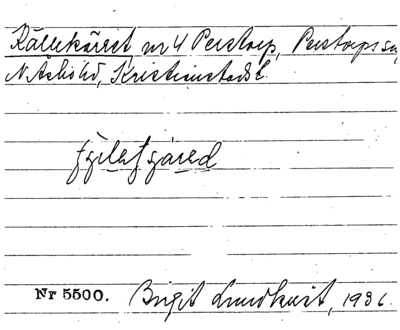 Källekärret nr 4 Perstorp, Perstorps sn,
N. Åsbo hd, Kristianstads l.
Nr 5500. Birgit Lundkvist, 1936.